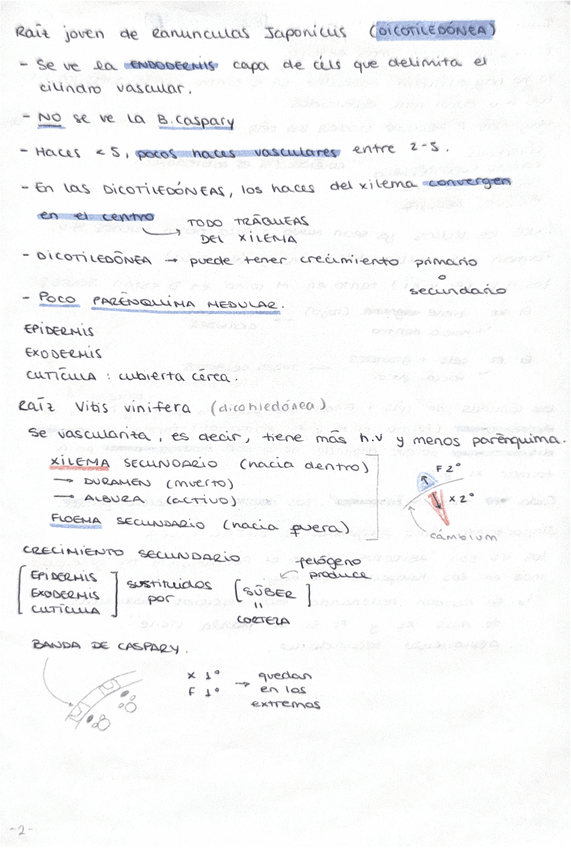 Raíz joven de Ranunculas Japonicus (DICOTILEDÓNEA)
- Se ve la ENDODERMIS capa de céls que delimita el
cilindro vascular.
- NO se ve la B.Caspary
- Haces < 5, pocos haces vasculares entre 2-5.
- En las DICOTILEDÓNEAS, los haces del xilema convergen
en el centro
→ TODO TRÁQUEAS
DEL XILEMA
- DICOTILEDÓNEA → puede tener crecimiento primario
o
secundario
- POCO PARENQUIMA MEDULAR.
EPIDERMIS
EXODERMIS
CUTÍCULA : cubierta cérea.
Raíz Vitis vinifera (dicotiledónea)
Se vasculariza, es decir, tiene más h.v y menos parénquima.
XILEMA SECUNDARIO (hacia dentro)
→ DURAMEN (muerto)
→ ALBURA (activo)
FLOEMA SECUNDARIO (hacia fuera)
F 2º
X 2º
cámbium
CRECIMIENTO SECUNDARIO
EPIDERMIS
EXODERMIS
CUTÍCULA
sustituidos
por
[SÚBER]
felógeno
produce
"
CORTEZA
BANDA DE CASPARY.
X 1º
F 1º
→ quedan
en los
extremos
-2-